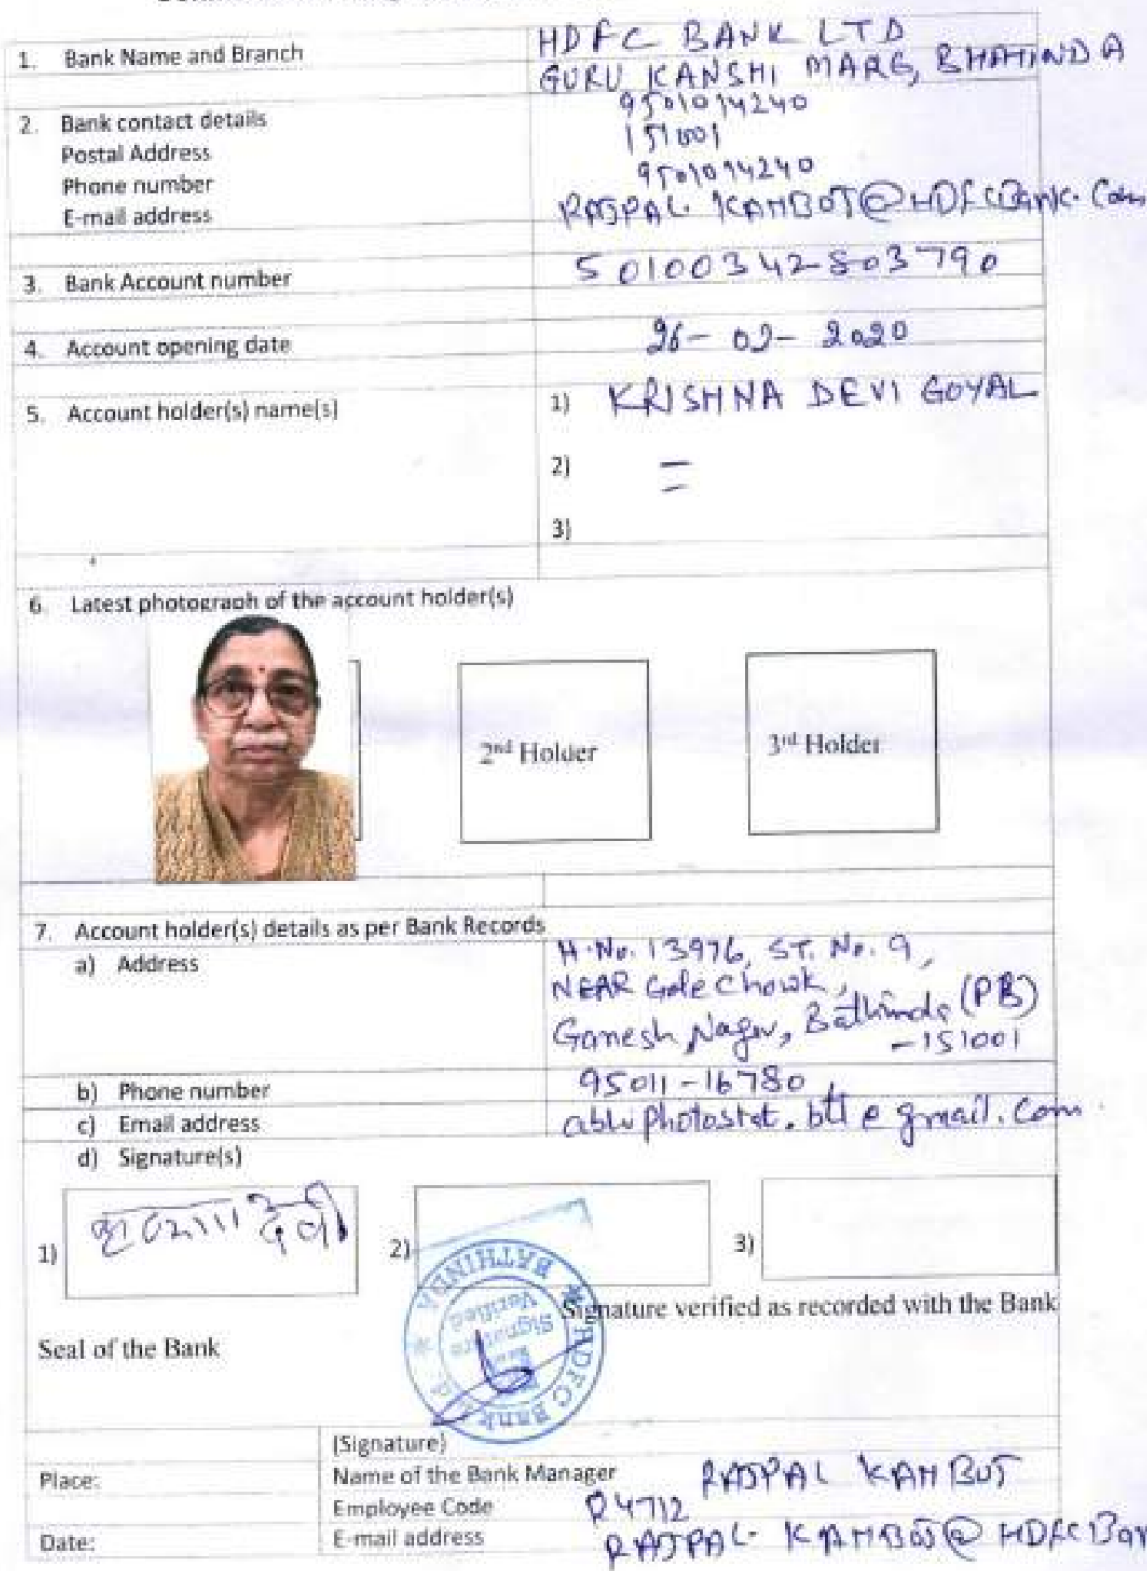 1. Bank Name and Branch HDFC BANK LTD
GURU KANSHI MARG, BHATINDA
2. Bank contact details 9501014240
Postal Address 151001
Phone number 9501014240
E-mail address RAJPAL. KAMBOJ@HDFCBank.Com
3. Bank Account number 50100342803790
4. Account opening date 26-02-2020
5. Account holder(s) name(s) 1) KRISHNA DEVI GOYAL
2) =
3)
6. Latest photograph of the account holder(s)
2nd Holder
3rd Holder
7. Account holder(s) details as per Bank Records
a) Address H.No. 13976, ST. No. 9,
NEAR Gole Chowk,
Ganesh Nagar, Bathinda (PB)
-151001
b) Phone number 95011-16780
c) Email address
d) Signature(s)
1) देवी 2) 3)
BATHINDA
HDFC Bank Ltd.
Signature
Verified
Signature verified as recorded with the Bank
Seal of the Bank
(Signature)
Place: Name of the Bank Manager RAJPAL KAMBOJ
Employee Code R4712
Date: E-mail address RAJPAL. KAMBOJ@HDFCBan